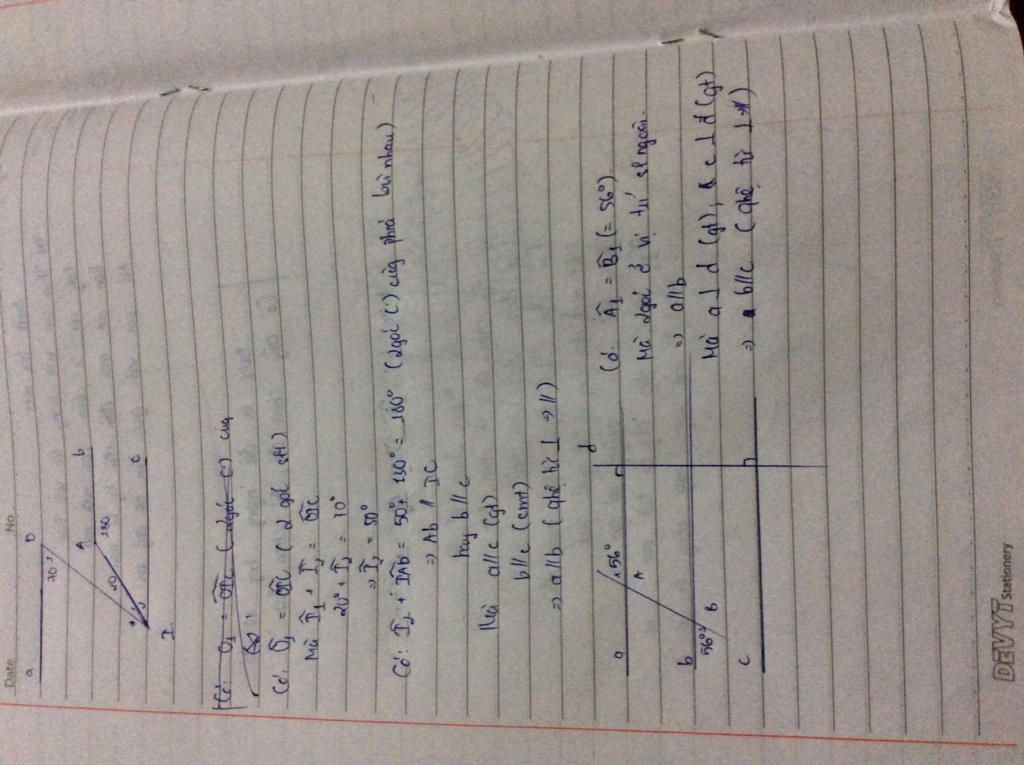 Date No.
a
O
70
b
A
130
20
c
I
Có: Ô₁ = OIC (2 góc (.) cùng
Có: Ô₁ = OIC (2 góc slt)
Mà Î₁ + Î₂ = OIC
20° + Î₂ = 70°
⇒ Î₂ = 50°
Có: Î₂ + IAb = 50° + 130° = 180° (2 góc (.) cùng phía bù nhau)
⇒ Ab // IC
hay b // c
Mà a // c (gt)
b // c (cmt)
⇒ a // b (qhệ từ ⊥ ⇒ //)
d
a
1 56°
A
b
56° 1
B
c
Có: Â₁ = B̂₁ (= 56°)
Mà 2 góc ở vị trí sl ngoài
⇒ a // b
Mà a ⊥ d (gt), & c ⊥ d (gt)
⇒ b // c (qhệ từ ⊥ ⇒ //)
DEVYT Stationery